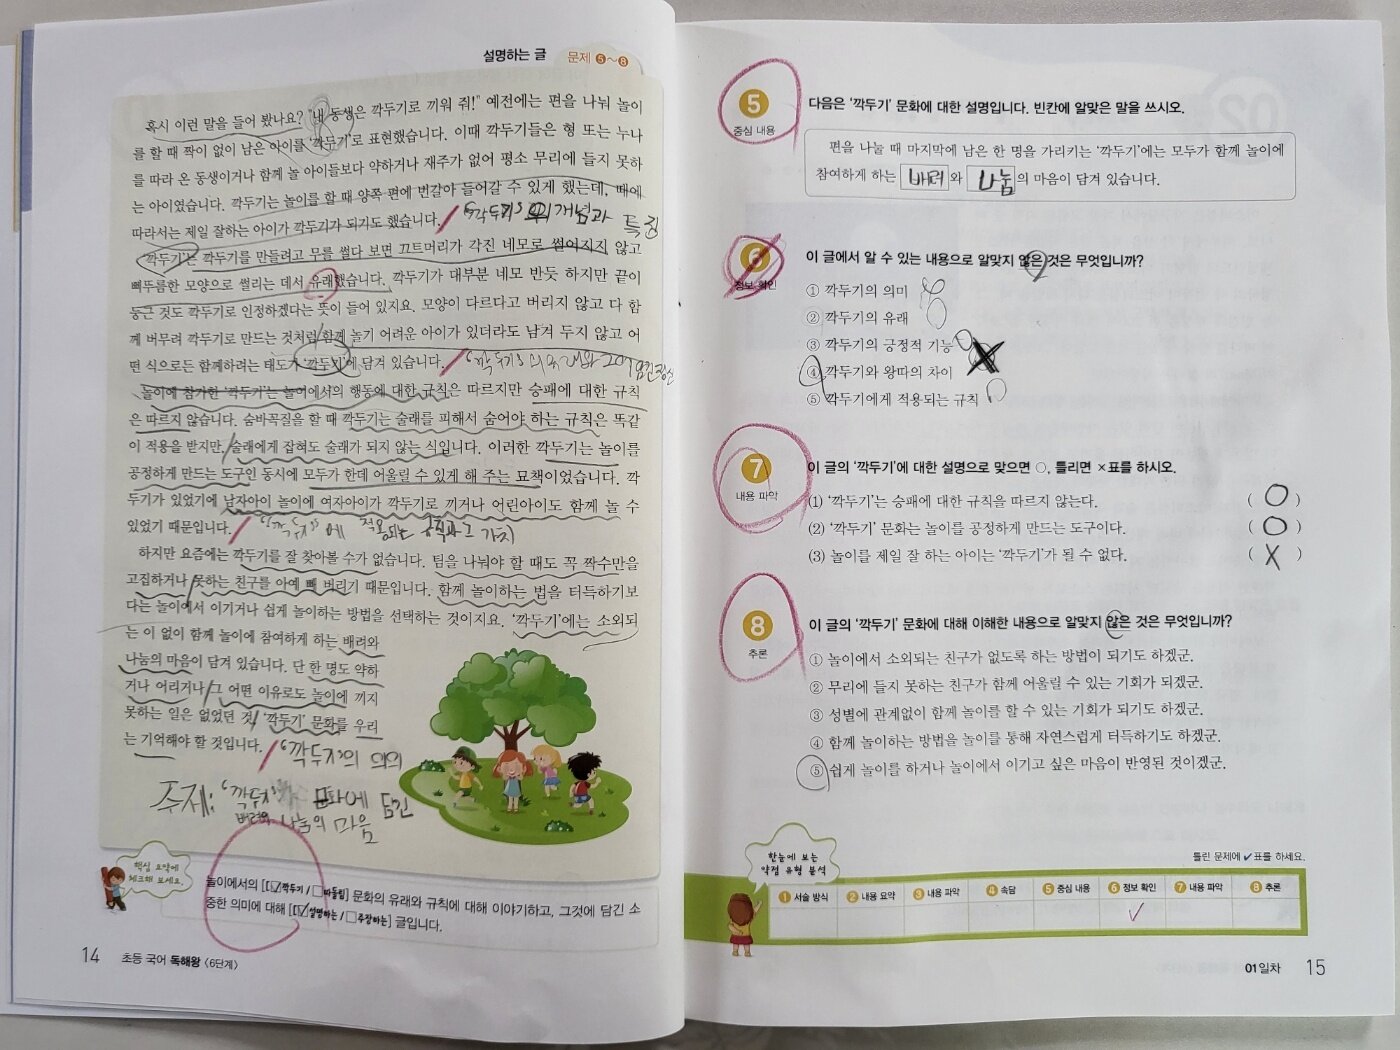 설명하는 글 문제 5~8
혹시 이런 말을 들어 봤나요? "내 동생은 깍두기로 끼워 줘!" 예전에는 편을 나눠 놀이
를 할 때 짝이 없이 남은 아이를 '깍두기'로 표현했습니다. 이때 깍두기들은 형 또는 누나
를 따라 온 동생이거나 함께 놀 아이들보다 약하거나 재주가 없어 평소 무리에 들지 못하
는 아이였습니다. 깍두기는 놀이를 할 때 양쪽 편에 번갈아 들어갈 수 있게 했는데, 때에
따라서는 제일 잘하는 아이가 깍두기가 되기도 했습니다. / '깍두기'의 개념과 특징
'깍두기'는 깍두기를 만들려고 무를 썰다 보면 끄트머리가 각진 네모로 썰어지지 않고
삐뚜름한 모양으로 썰리는 데서 유래했습니다. 깍두기가 대부분 네모 반듯 하지만 끝이
둥근 것도 깍두기로 인정하겠다는 뜻이 들어 있지요. 모양이 다르다고 버리지 않고 다 함
께 버무려 깍두기로 만드는 것처럼 함께 놀기 어려운 아이가 있더라도 남겨 두지 않고 어
떤 식으로든 함께하려는 태도가 '깍두기'에 담겨 있습니다. / '깍두기'
놀이에 참가한 '깍두기'는 놀이에서의 행동에 대한 규칙은 따르지만 승패에 대한 규칙
은 따르지 않습니다. 숨바꼭질을 할 때 깍두기는 술래를 피해서 숨어야 하는 규칙은 똑같
이 적용을 받지만, 술래에게 잡혀도 술래가 되지 않는 식입니다. 이러한 깍두기는 놀이를
공정하게 만드는 도구인 동시에 모두가 한데 어울릴 수 있게 해 주는 묘책이었습니다. 깍
두기가 있었기에 남자아이 놀이에 여자아이가 깍두기로 끼거나 어린아이도 함께 놀 수
있었기 때문입니다. / '깍두기'에 적용되는 규칙과 그 가치
하지만 요즘에는 깍두기를 잘 찾아볼 수가 없습니다. 팀을 나눠야 할 때도 꼭 짝수만을
고집하거나 못하는 친구를 아예 빼 버리기 때문입니다. 함께 놀이하는 법을 터득하기보
다는 놀이에서 이기거나 쉽게 놀이하는 방법을 선택하는 것이지요. '깍두기'에는 소외되
는 이 없이 함께 놀이에 참여하게 하는 배려와
나눔의 마음이 담겨 있습니다. 단 한 명도 약하
거나 어리거나 그 어떤 이유로도 놀이에 끼지
못하는 일은 없었던 것, '깍두기' 문화를 우리
는 기억해야 할 것입니다. / '깍두기'의 의의
주제: '깍두기' 문화에 담긴
배려와 나눔의 마음
핵심 요약에
체크해 보세요.
놀이에서의 [☑깍두기 / □따돌림] 문화의 유래와 규칙에 대해 이야기하고, 그것에 담긴 소
중한 의미에 대해 [☑설명하는 / □주장하는] 글입니다.
14 초등 국어 독해왕 <6단계>
5 다음은 '깍두기' 문화에 대한 설명입니다. 빈칸에 알맞은 말을 쓰시오.
중심 내용
편을 나눌 때 마지막에 남은 한 명을 가리키는 '깍두기'에는 모두가 함께 놀이에
참여하게 하는 배려 와 나눔 의 마음이 담겨 있습니다.
6 이 글에서 알 수 있는 내용으로 알맞지 않은 것은 무엇입니까?
정보 확인
① 깍두기의 의미
② 깍두기의 유래
③ 깍두기의 긍정적 기능
④ 깍두기와 왕따의 차이
⑤ 깍두기에게 적용되는 규칙
7 이 글의 '깍두기'에 대한 설명으로 맞으면 ○, 틀리면 ×표를 하시오.
내용 파악
(1) '깍두기'는 승패에 대한 규칙을 따르지 않는다. ( O )
(2) '깍두기' 문화는 놀이를 공정하게 만드는 도구이다. ( O )
(3) 놀이를 제일 잘 하는 아이는 '깍두기'가 될 수 없다. ( X )
8 이 글의 '깍두기' 문화에 대해 이해한 내용으로 알맞지 않은 것은 무엇입니까?
추론
① 놀이에서 소외되는 친구가 없도록 하는 방법이 되기도 하겠군.
② 무리에 들지 못하는 친구가 함께 어울릴 수 있는 기회가 되겠군.
③ 성별에 관계없이 함께 놀이를 할 수 있는 기회가 되기도 하겠군.
④ 함께 놀이하는 방법을 놀이를 통해 자연스럽게 터득하기도 하겠군.
⑤ 쉽게 놀이를 하거나 놀이에서 이기고 싶은 마음이 반영된 것이겠군.
한눈에 보는
약점 유형 분석
틀린 문제에 ✔표를 하세요.
1 서술 방식 2 내용 요약 3 내용 파악 4 속담 5 중심 내용 6 정보 확인 7 내용 파악 8 추론
✓
01일차 15